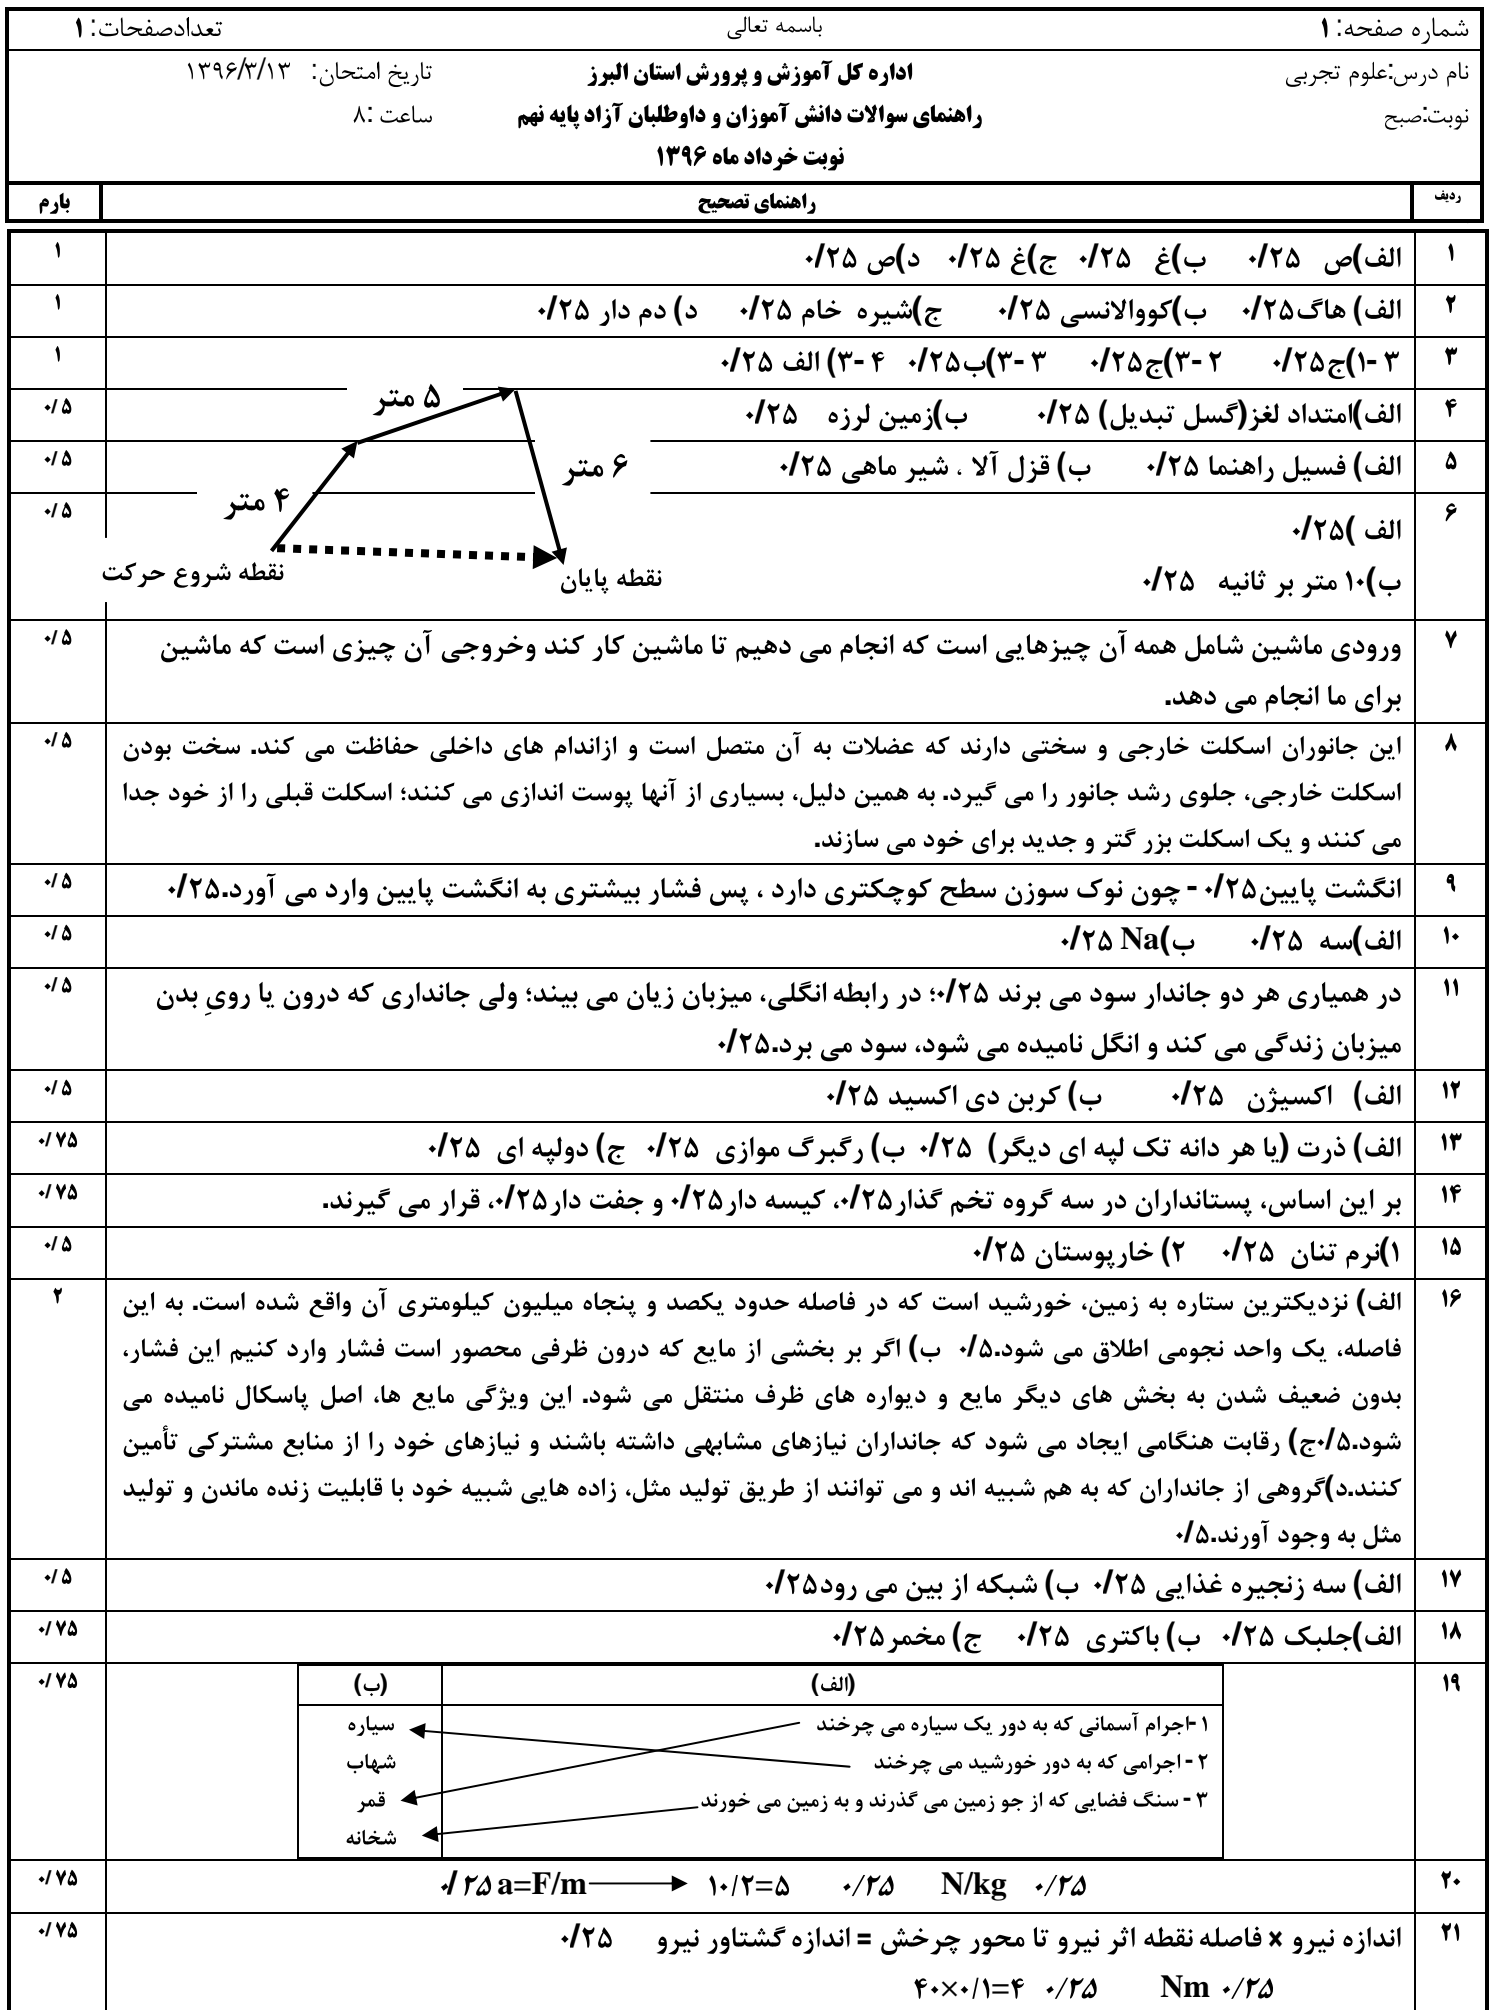 شماره صفحه: ۱ باسمه تعالی تعدادصفحات: ۱
نام درس:علوم تجربی اداره کل آموزش و پرورش استان البرز تاریخ امتحان: ۱۳۹۶/۳/۱۳
نوبت:صبح راهنمای سوالات دانش آموزان و داوطلبان آزاد پایه نهم ساعت :۸
نوبت خرداد ماه ۱۳۹۶
ردیف راهنمای تصحیح بارم
۱ الف)ص ۰/۲۵ ب)غ ۰/۲۵ ج)غ ۰/۲۵ د)ص ۰/۲۵ ۱
۲ الف) هاگ۰/۲۵ ب)کووالانسی ۰/۲۵ ج)شیره خام ۰/۲۵ د) دم دار ۰/۲۵ ۱
۳ ۳ -۱)ج۰/۲۵ ۲ -۳)ج۰/۲۵ ۳ -۳)ب۰/۲۵ ۴ -۳) الف ۰/۲۵ ۱
۴ الف)امتداد لغز(گسل تبدیل) ۰/۲۵ ب)زمین لرزه ۰/۲۵ ۵ متر ۰/۵
۵ الف) فسیل راهنما ۰/۲۵ ب) قزل آلا ، شیر ماهی ۰/۲۵ ۶ متر ۰/۵
۶ الف )۰/۲۵ ۴ متر ۰/۵
ب)۱۰ متر بر ثانیه ۰/۲۵ نقطه پایان نقطه شروع حرکت
۷ ورودی ماشین شامل همه آن چیزهایی است که انجام می دهیم تا ماشین کار کند وخروجی آن چیزی است که ماشین ۰/۵
برای ما انجام می دهد.
۸ این جانوران اسکلت خارجی و سختی دارند که عضلات به آن متصل است و ازاندام های داخلی حفاظت می کند. سخت بودن ۰/۵
اسکلت خارجی، جلوی رشد جانور را می گیرد. به همین دلیل، بسیاری از آنها پوست اندازی می کنند؛ اسکلت قبلی را از خود جدا
می کنند و یک اسکلت بزر گتر و جدید برای خود می سازند.
۹ انگشت پایین۰/۲۵ - چون نوک سوزن سطح کوچکتری دارد ، پس فشار بیشتری به انگشت پایین وارد می آورد.۰/۲۵ ۰/۵
۱۰ الف)سه ۰/۲۵ ب)Na ۰/۲۵ ۰/۵
۱۱ در همیاری هر دو جاندار سود می برند ۰/۲۵؛ در رابطه انگلی، میزبان زیان می بیند؛ ولی جانداری که درون یا رویِ بدن ۰/۵
میزبان زندگی می کند و انگل نامیده می شود، سود می برد.۰/۲۵
۱۲ الف) اکسیژن ۰/۲۵ ب) کربن دی اکسید ۰/۲۵ ۰/۵
۱۳ الف) ذرت (یا هر دانه تک لپه ای دیگر) ۰/۲۵ ب) رگبرگ موازی ۰/۲۵ ج) دولپه ای ۰/۲۵ ۰/۷۵
۱۴ بر این اساس، پستانداران در سه گروه تخم گذار۰/۲۵، کیسه دار۰/۲۵ و جفت دار۰/۲۵، قرار می گیرند. ۰/۷۵
۱۵ ۱)نرم تنان ۰/۲۵ ۲) خارپوستان ۰/۲۵ ۰/۵
۱۶ الف) نزدیکترین ستاره به زمین، خورشید است که در فاصله حدود یکصد و پنجاه میلیون کیلومتری آن واقع شده است. به این ۲
فاصله، یک واحد نجومی اطلاق می شود.۰/۵ ب) اگر بر بخشی از مایع که درون ظرفی محصور است فشار وارد کنیم این فشار،
بدون ضعیف شدن به بخش های دیگر مایع و دیواره های ظرف منتقل می شود. این ویژگی مایع ها، اصل پاسکال نامیده می
شود.۰/۵ج) رقابت هنگامی ایجاد می شود که جانداران نیازهای مشابهی داشته باشند و نیازهای خود را از منابع مشترکی تأمین
کنند.د)گروهی از جانداران که به هم شبیه اند و می توانند از طریق تولید مثل، زاده هایی شبیه خود با قابلیت زنده ماندن و تولید
مثل به وجود آورند.۰/۵
۱۷ الف) سه زنجیره غذایی ۰/۲۵ ب) شبکه از بین می رود۰/۲۵ ۰/۵
۱۸ الف)جلبک ۰/۲۵ ب) باکتری ۰/۲۵ ج) مخمر۰/۲۵ ۰/۷۵
۱۹ (الف) (ب) ۰/۷۵
۱-اجرام آسمانی که به دور یک سیاره می چرخند سیاره
۲ - اجرامی که به دور خورشید می چرخند شهاب
۳ - سنگ فضایی که از جو زمین می گذرند و به زمین می خورند قمر
شخانه
۲۰ ۰/۲۵ a=F/m ۱۰/۲=۵ ۰/۲۵ N/kg ۰/۲۵ ۰/۷۵
۲۱ اندازه نیرو × فاصله نقطه اثر نیرو تا محور چرخش = اندازه گشتاور نیرو ۰/۲۵ ۰/۷۵
۴۰×۰/۱=۴ ۰/۲۵ Nm ۰/۲۵